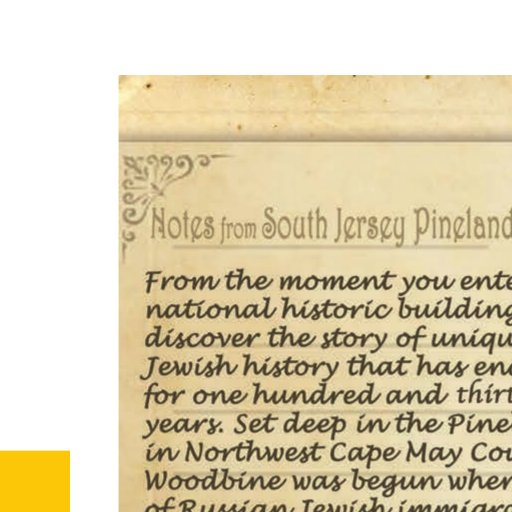 Notes from South Jersey Pineland
From the moment you ente
national historic building
discover the story of uniqu
Jewish history that has en
for one hundred and thirt
years. Set deep in the Pine
in Northwest Cape May Cou
Woodbine was begun when
of Russian Jewish immigra